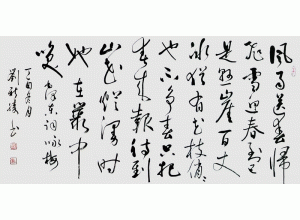 風雨送春歸
飛雪迎春到已
是懸崖百丈
冰猶有花枝俏〻
也不爭春只把
春來報待到
山花爛漫時
她在叢中
笑
毛澤東詞詠梅
丁酉冬月